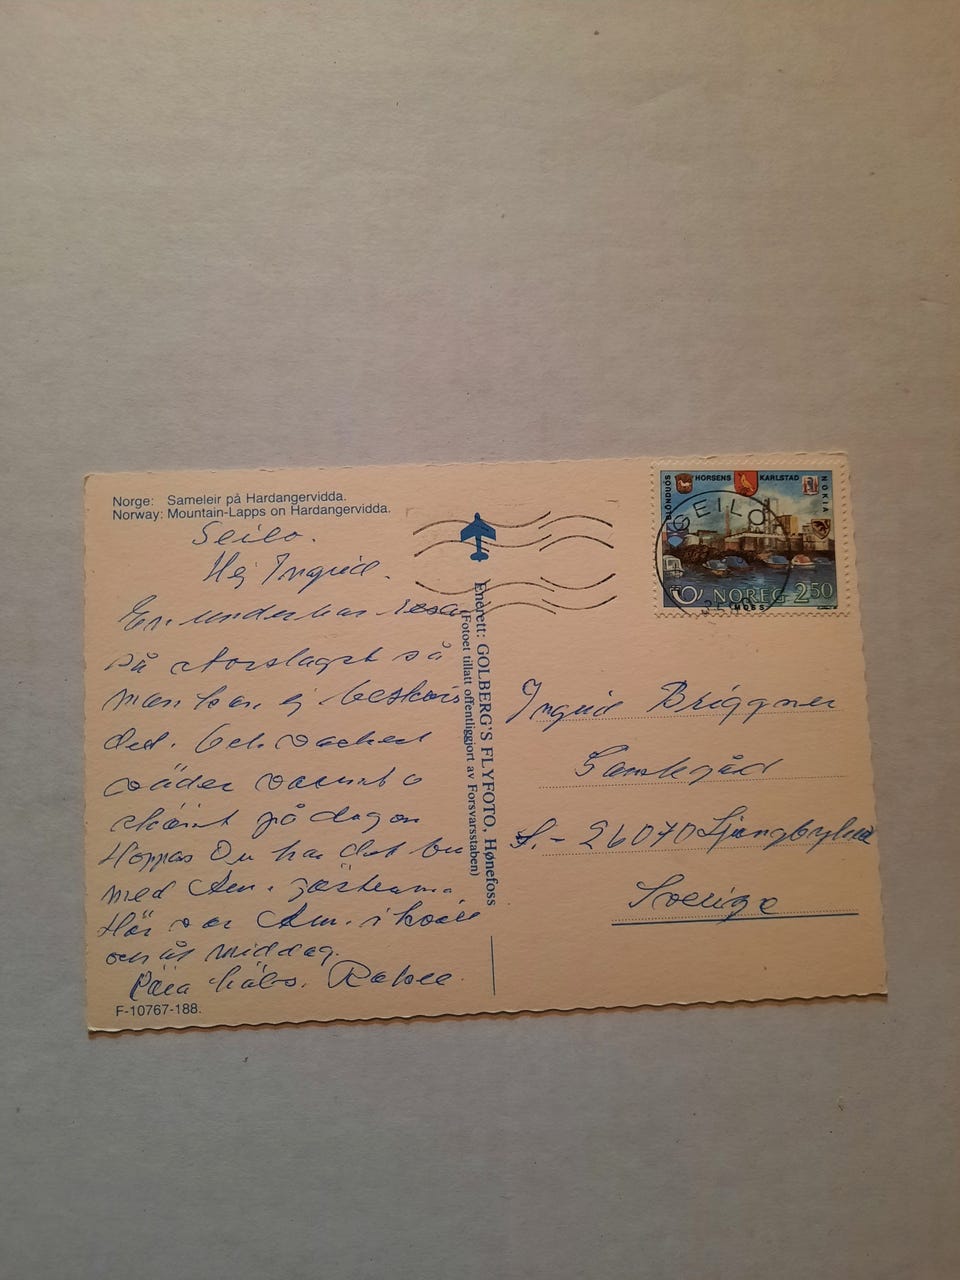 Norge: Sameleir på Hardangervidda.
Norway: Mountain-Lapps on Hardangervidda.
Geilo.
Hej Ingrid.
En underbar resa
så storslaget så
man kan ej beskriva
det. Och vackert
väder varmt o
skönt på dagen
Hoppas Du har det bra
med
Här var
och åt middag.
Kära häls.
F-10767-188.
Enerett: GOLBERG'S FLYFOTO, Hønefoss
(Fotoet tillatt offentliggjort av Forsvarsstaben)
NORDISK HORSENS KARLSTAD NOKIA
GEILO
NOREG 250
MOSS
Ingrid Briggner
S.- 26070 Ljungbyhed
Sverige